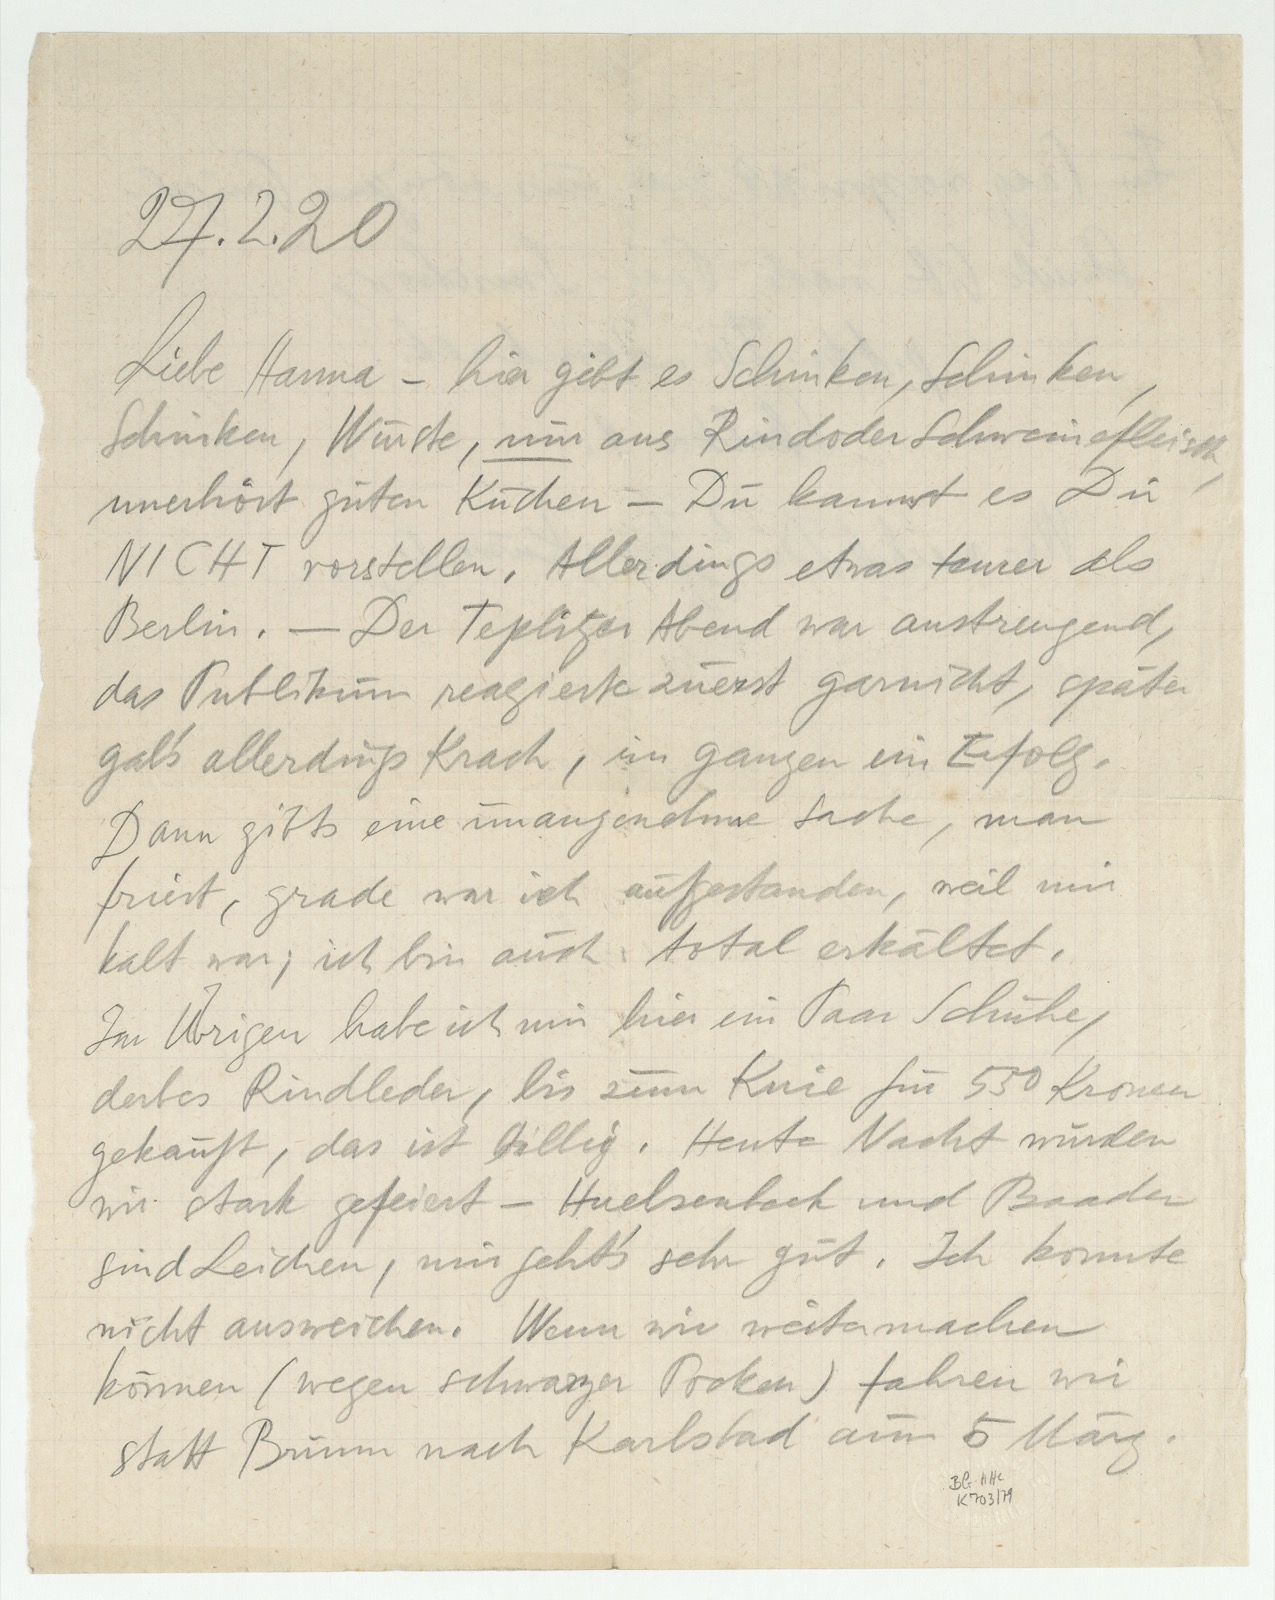 27.2.20
Liebe Hanna – hier gibt es Schinken, Schinken,
Schinken, Würste, nur aus Rindoder Schweinefleisch,
unerhört guten Kuchen – Du kannst es Dir
NICHT vorstellen. Allerdings etwas teurer als
Berlin. — Der Teplitzer Abend war anstrengend,
das Publikum reagierte zuerst garnicht, später
gab's allerdings Krach, im ganzen ein Erfolg.
Dann gibts eine unangenehme Sache, man
friert, grade war ich aufgestanden, weil mir
kalt war; ich bin auch total erkältet.
Im Übrigen habe ich mir hier ein Paar Schuhe,
derbes Rindleder, bis zum Knie für 550 Kronen
gekauft, das ist billig. Heute Nacht wurden
wir stark gefeiert – Huelsenbeck und Baader
sind Leichen, mir geht's sehr gut. Ich konnte
nicht ausweichen. Wenn wir weitermachen
können (wegen schwarzer Pocken) fahren wir
statt Brünn nach Karlsbad am 5 März.
BG-HHC
K703/79